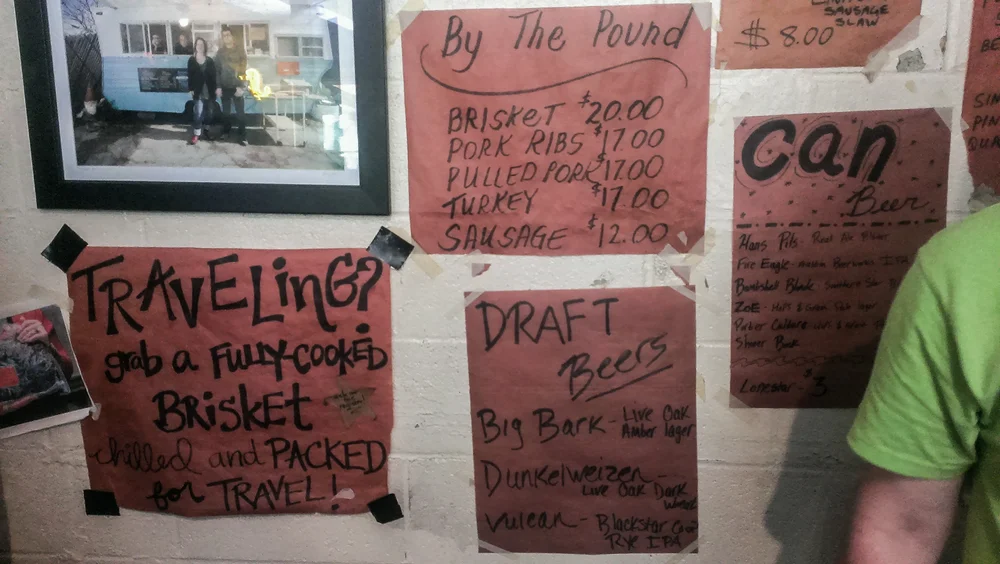 By The Pound
BRISKET $20.00
PORK RIBS $17.00
PULLED PORK $17.00
TURKEY $17.00
SAUSAGE $12.00
SAUSAGE
SLAW
$8.00
TRAVELinG?
grab a FULLY-COOKED
BRiSKET
chilled and PACKED
for TRAVEL!
DRAFT
Beers
Big Bark - Live Oak
Amber lager
Dunkelweizen -
Live Oak Dark
Wheat
Vulcan - Blackstar
Rye IPA
Can
Beer
Hans Pils - Real Ale
Fire Eagle - Austin Beerworks IPA
Bombshell Blonde - Southern Star
ZOE - Lager
Shiner Bock
Lonestar - $3